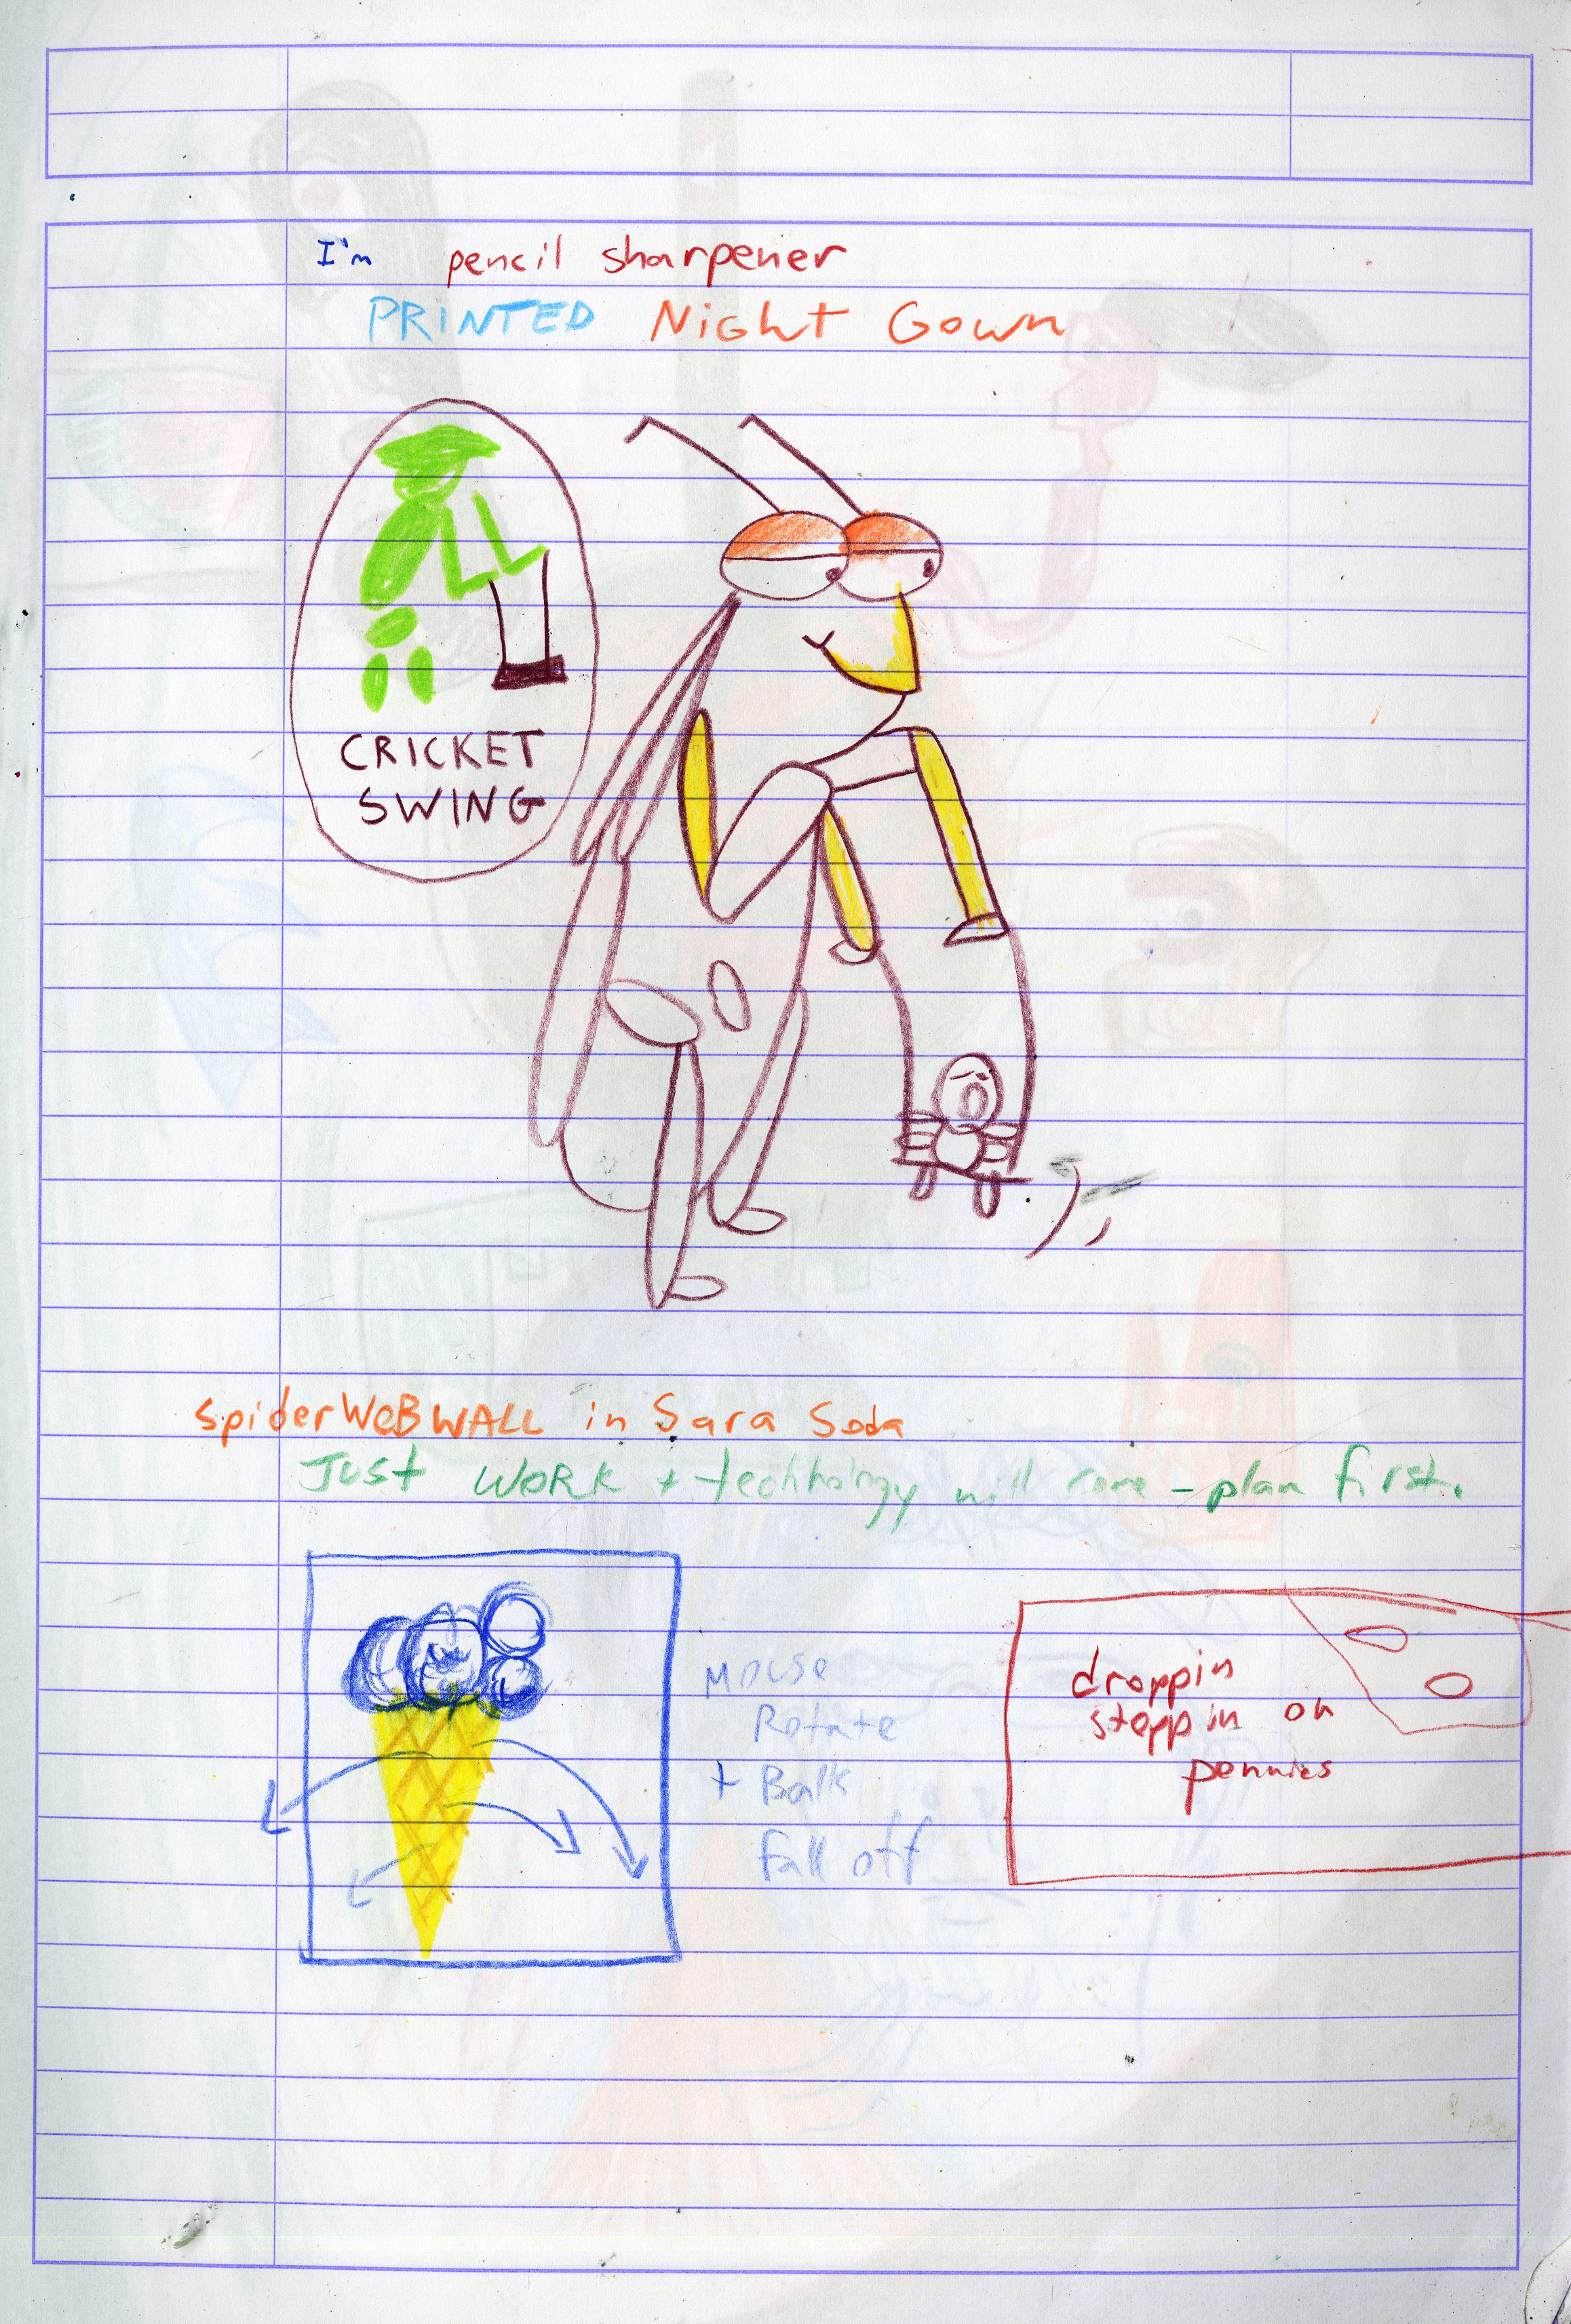 I'm pencil sharpener
PRINTED Night Gown
CRICKET
SWING
SpiderWeBWALL in Sara Soda
Just WORK + techhology will come - plan first.
Mouse
Rotate
+ Balls
fall off
droppin
steppin on
pennies